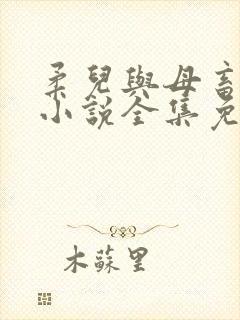 柔兒與母畜
小說全集免
木蘇里